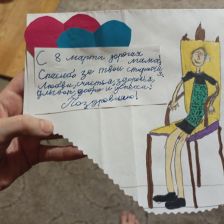 С 8 марта дорогая
мама,
Спасибо за твои старания,
Любви, счастья, здоровья,
добра и успехов!
Поздравляю!